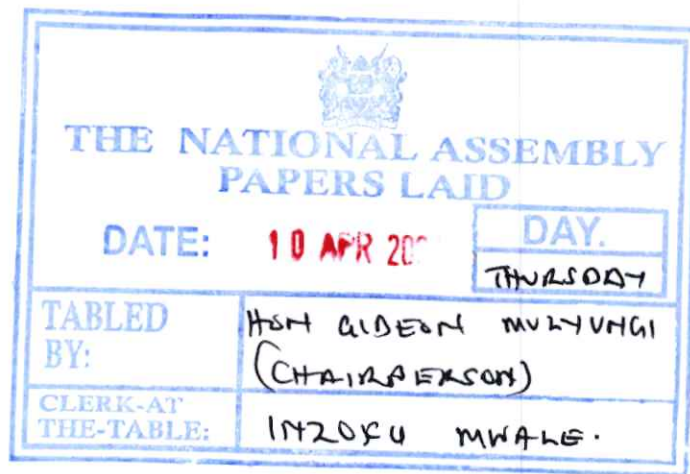 THE NATIONAL ASSEMBLY
PAPERS LAID
DATE: 10 APR 20
DAY.
THURSDAY
TABLED BY:
HON GIDEON MULYUNGI
(CHAIRPERSON)
CLERK-AT
THE-TABLE:
INZOFU MWALE.